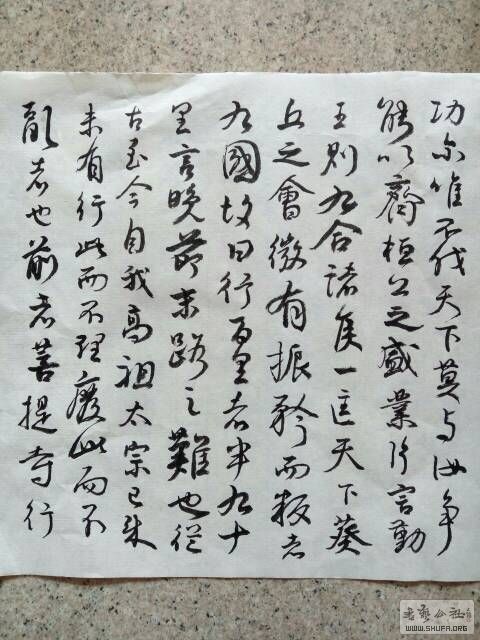 功尔唯不伐天下莫与汝争
能以齊桓公之盛業片言勤
王則九合諸侯一匡天下葵
丘之會微有振矜而叛者
九國故曰行百里者半九十
里言晚節末路之難也從
古至今自我高祖太宗已来
未有行此而不理廢此而不
亂者也前者菩提寺行
WWW.SHUFA.ORG